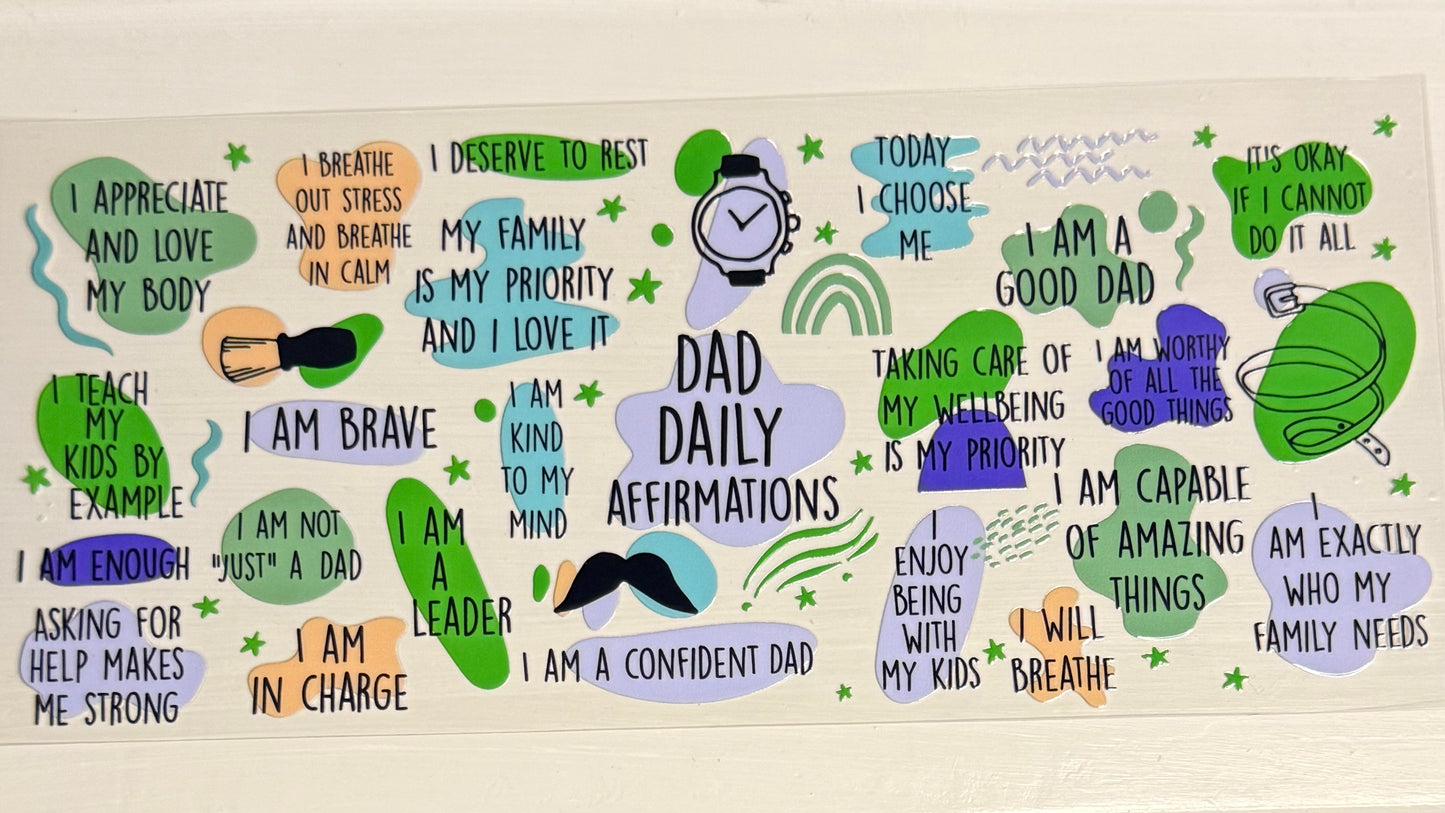 I APPRECIATE
AND LOVE
MY BODY
I BREATHE
OUT STRESS
AND BREATHE
IN CALM
I DESERVE TO REST
MY FAMILY
IS MY PRIORITY
AND I LOVE IT
TODAY
I CHOOSE
ME
I AM A
GOOD DAD
IT'S OKAY
IF I CANNOT
DO IT ALL
I TEACH
MY
KIDS BY
EXAMPLE
I AM BRAVE
I AM
KIND
TO MY
MIND
DAD
DAILY
AFFIRMATIONS
TAKING CARE OF
MY WELLBEING
IS MY PRIORITY
I AM WORTHY
OF ALL THE
GOOD THINGS
I AM ENOUGH
I AM NOT
"JUST" A DAD
I AM
A
LEADER
I
ENJOY
BEING
WITH
MY KIDS
I AM CAPABLE
OF AMAZING
THINGS
I
AM EXACTLY
WHO MY
FAMILY NEEDS
ASKING FOR
HELP MAKES
ME STRONG
I AM
IN CHARGE
I AM A CONFIDENT DAD
I WILL
BREATHE